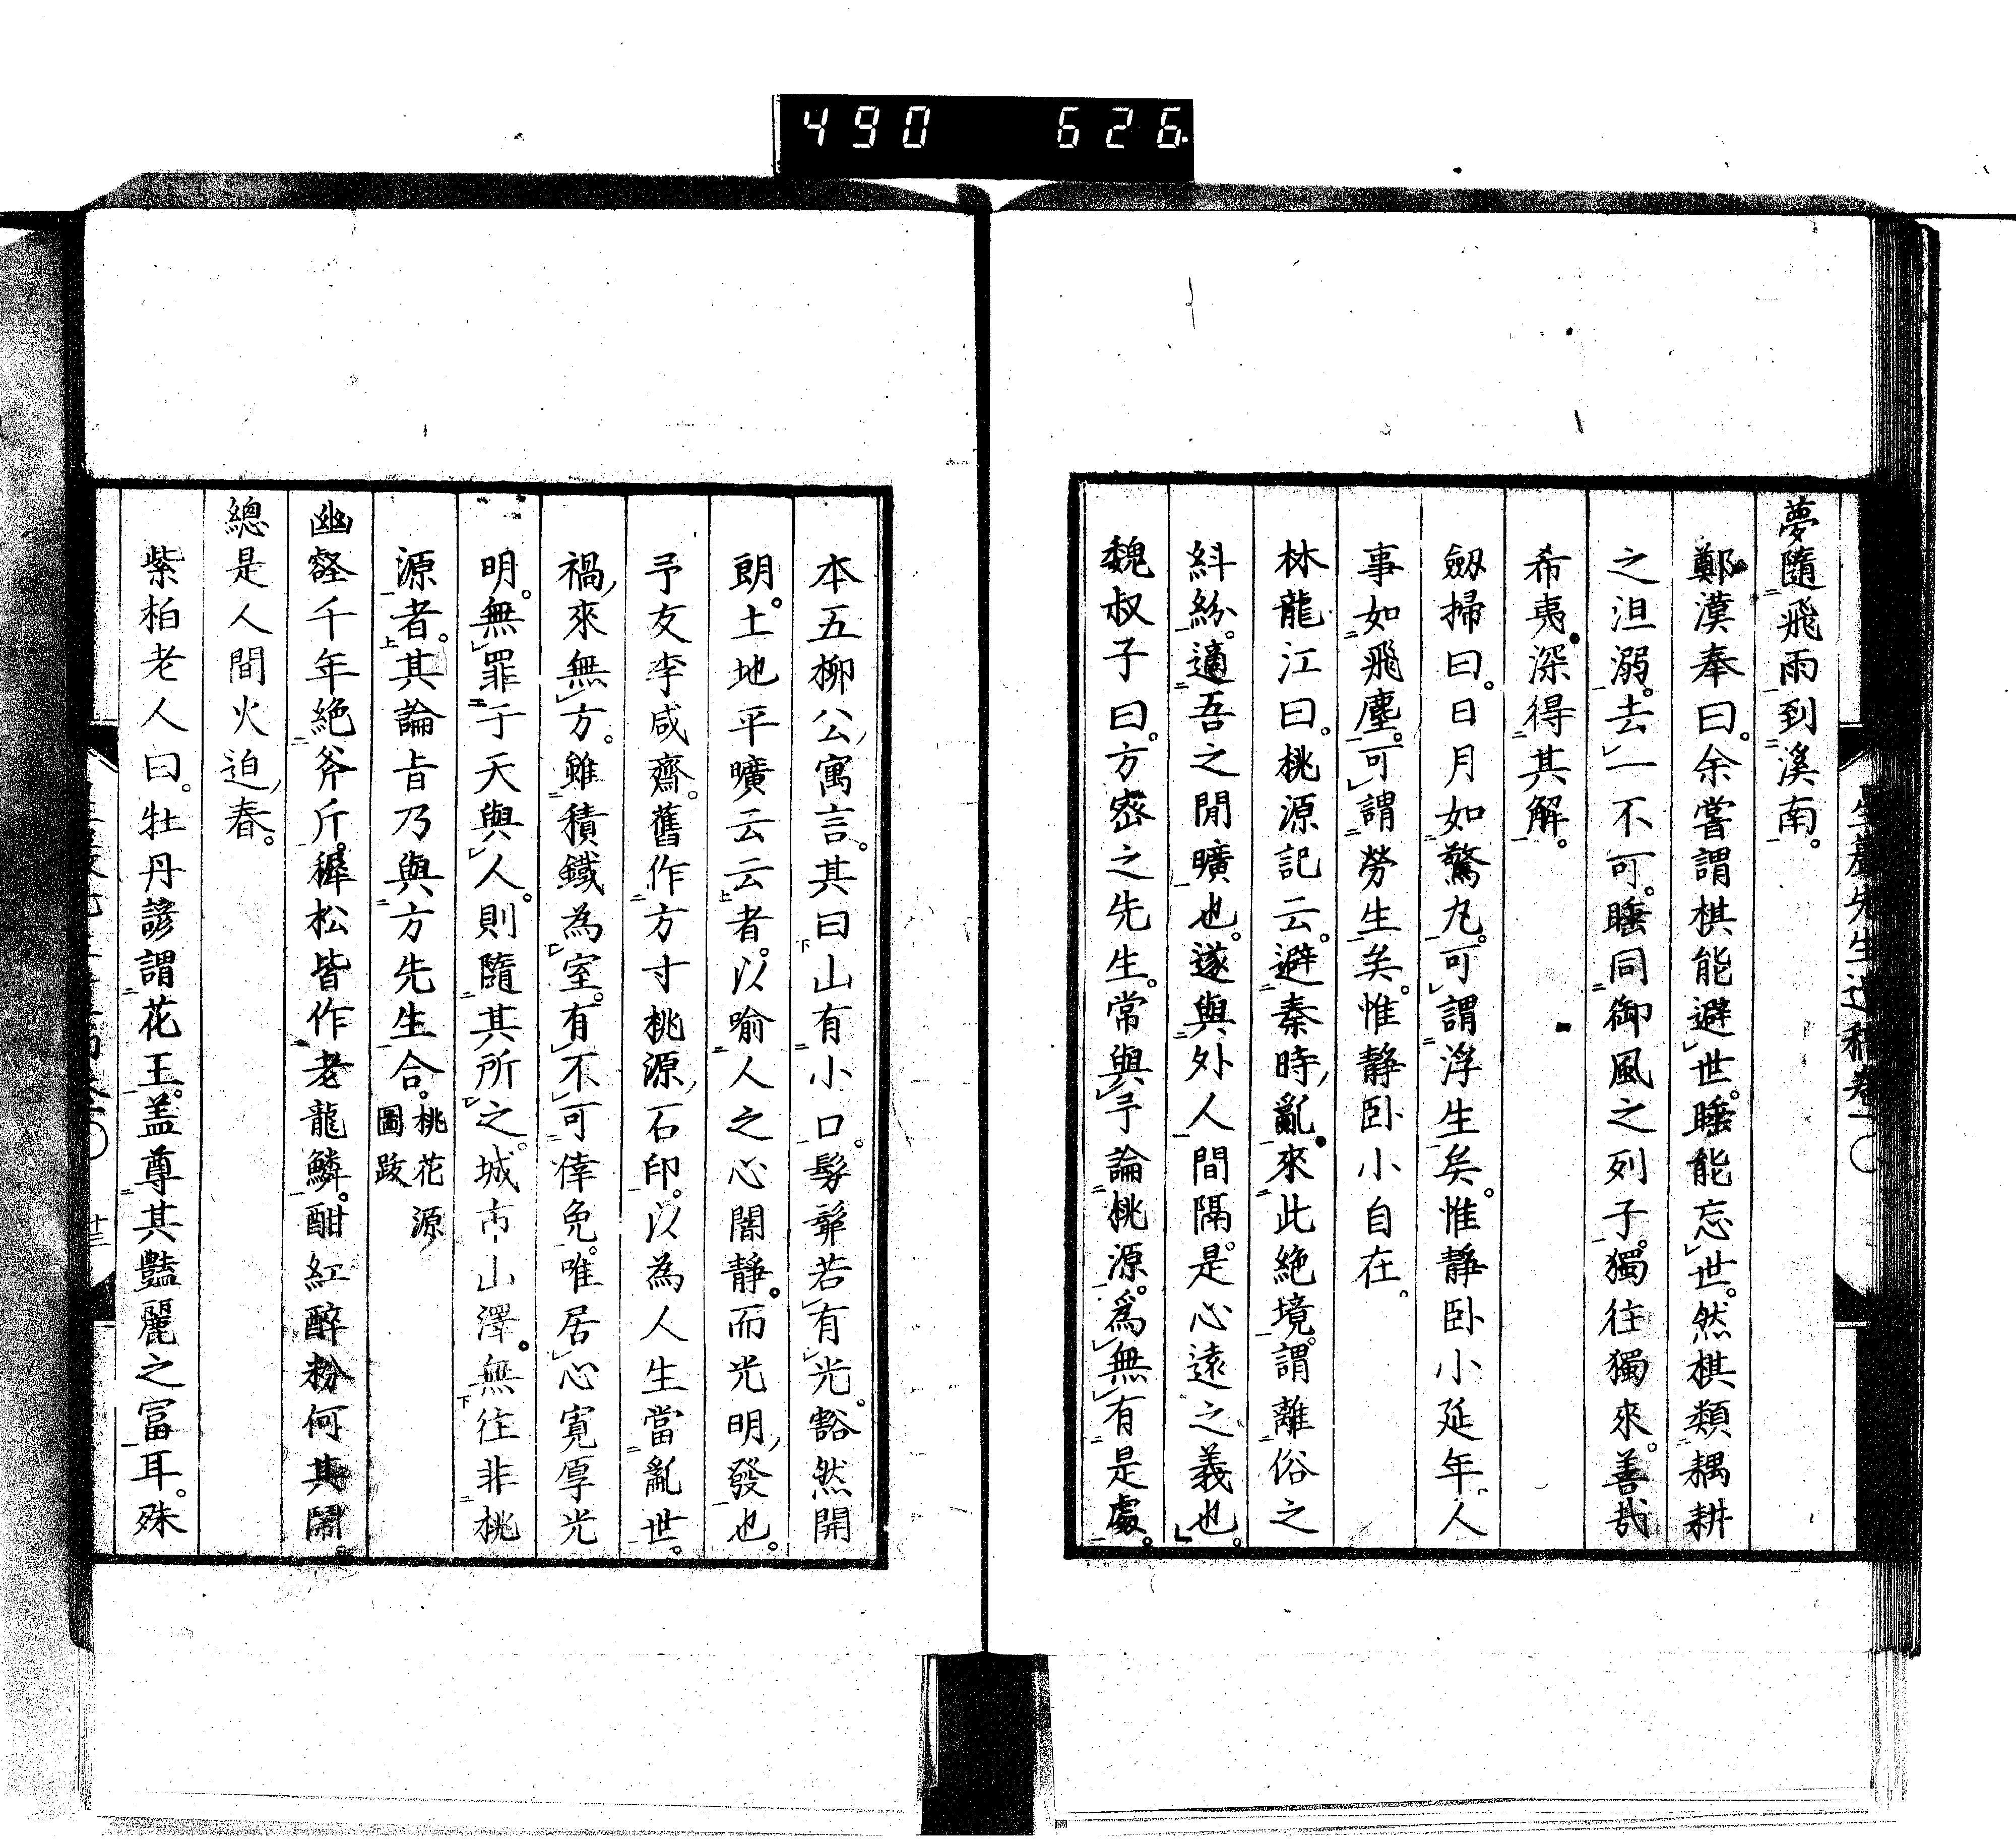 490 626
夢隨飛雨到溪南。
鄭漢奉曰。余嘗謂棋能避世。睡能忘世。然棋類耦耕
之沮溺。去一不可。睡同御風之列子。獨往獨來。善哉
希夷。深得其解。
劔掃曰。日月如驚丸。可謂浮生矣。惟靜卧小延年。人
事如飛塵。可謂勞生矣。惟静卧小自在。
林龍江曰。桃源記云。避秦時亂。來此絶境。謂離俗之
糾紛。適吾之閒曠也。遂與外人間隔。是心遠之義也。
魏叔子曰。方密之先生。常與予論桃源。爲無有是處。
本五柳公寓言。其曰山有小口。髣髴若有光。豁然開
朗。土地平曠云云者。以喻人之心闇靜。而光明發也。
予友李咸齋。舊作方寸桃源石印。以為人生當亂世。
禍來無方。雖積鐵為室。有不可倖免。唯居心寛厚光
明。無罪于天與人。則隨其所之。城市山澤。無往非桃
源者。其論旨乃與方先生合。桃花源圖跋
幽壑千年絶斧斤。稺松皆作老龍鱗。酣紅醉粉何其鬧。
總是人間火迫春。
紫柏老人曰。牡丹諺謂花王。盖尊其豔麗之富耳。殊